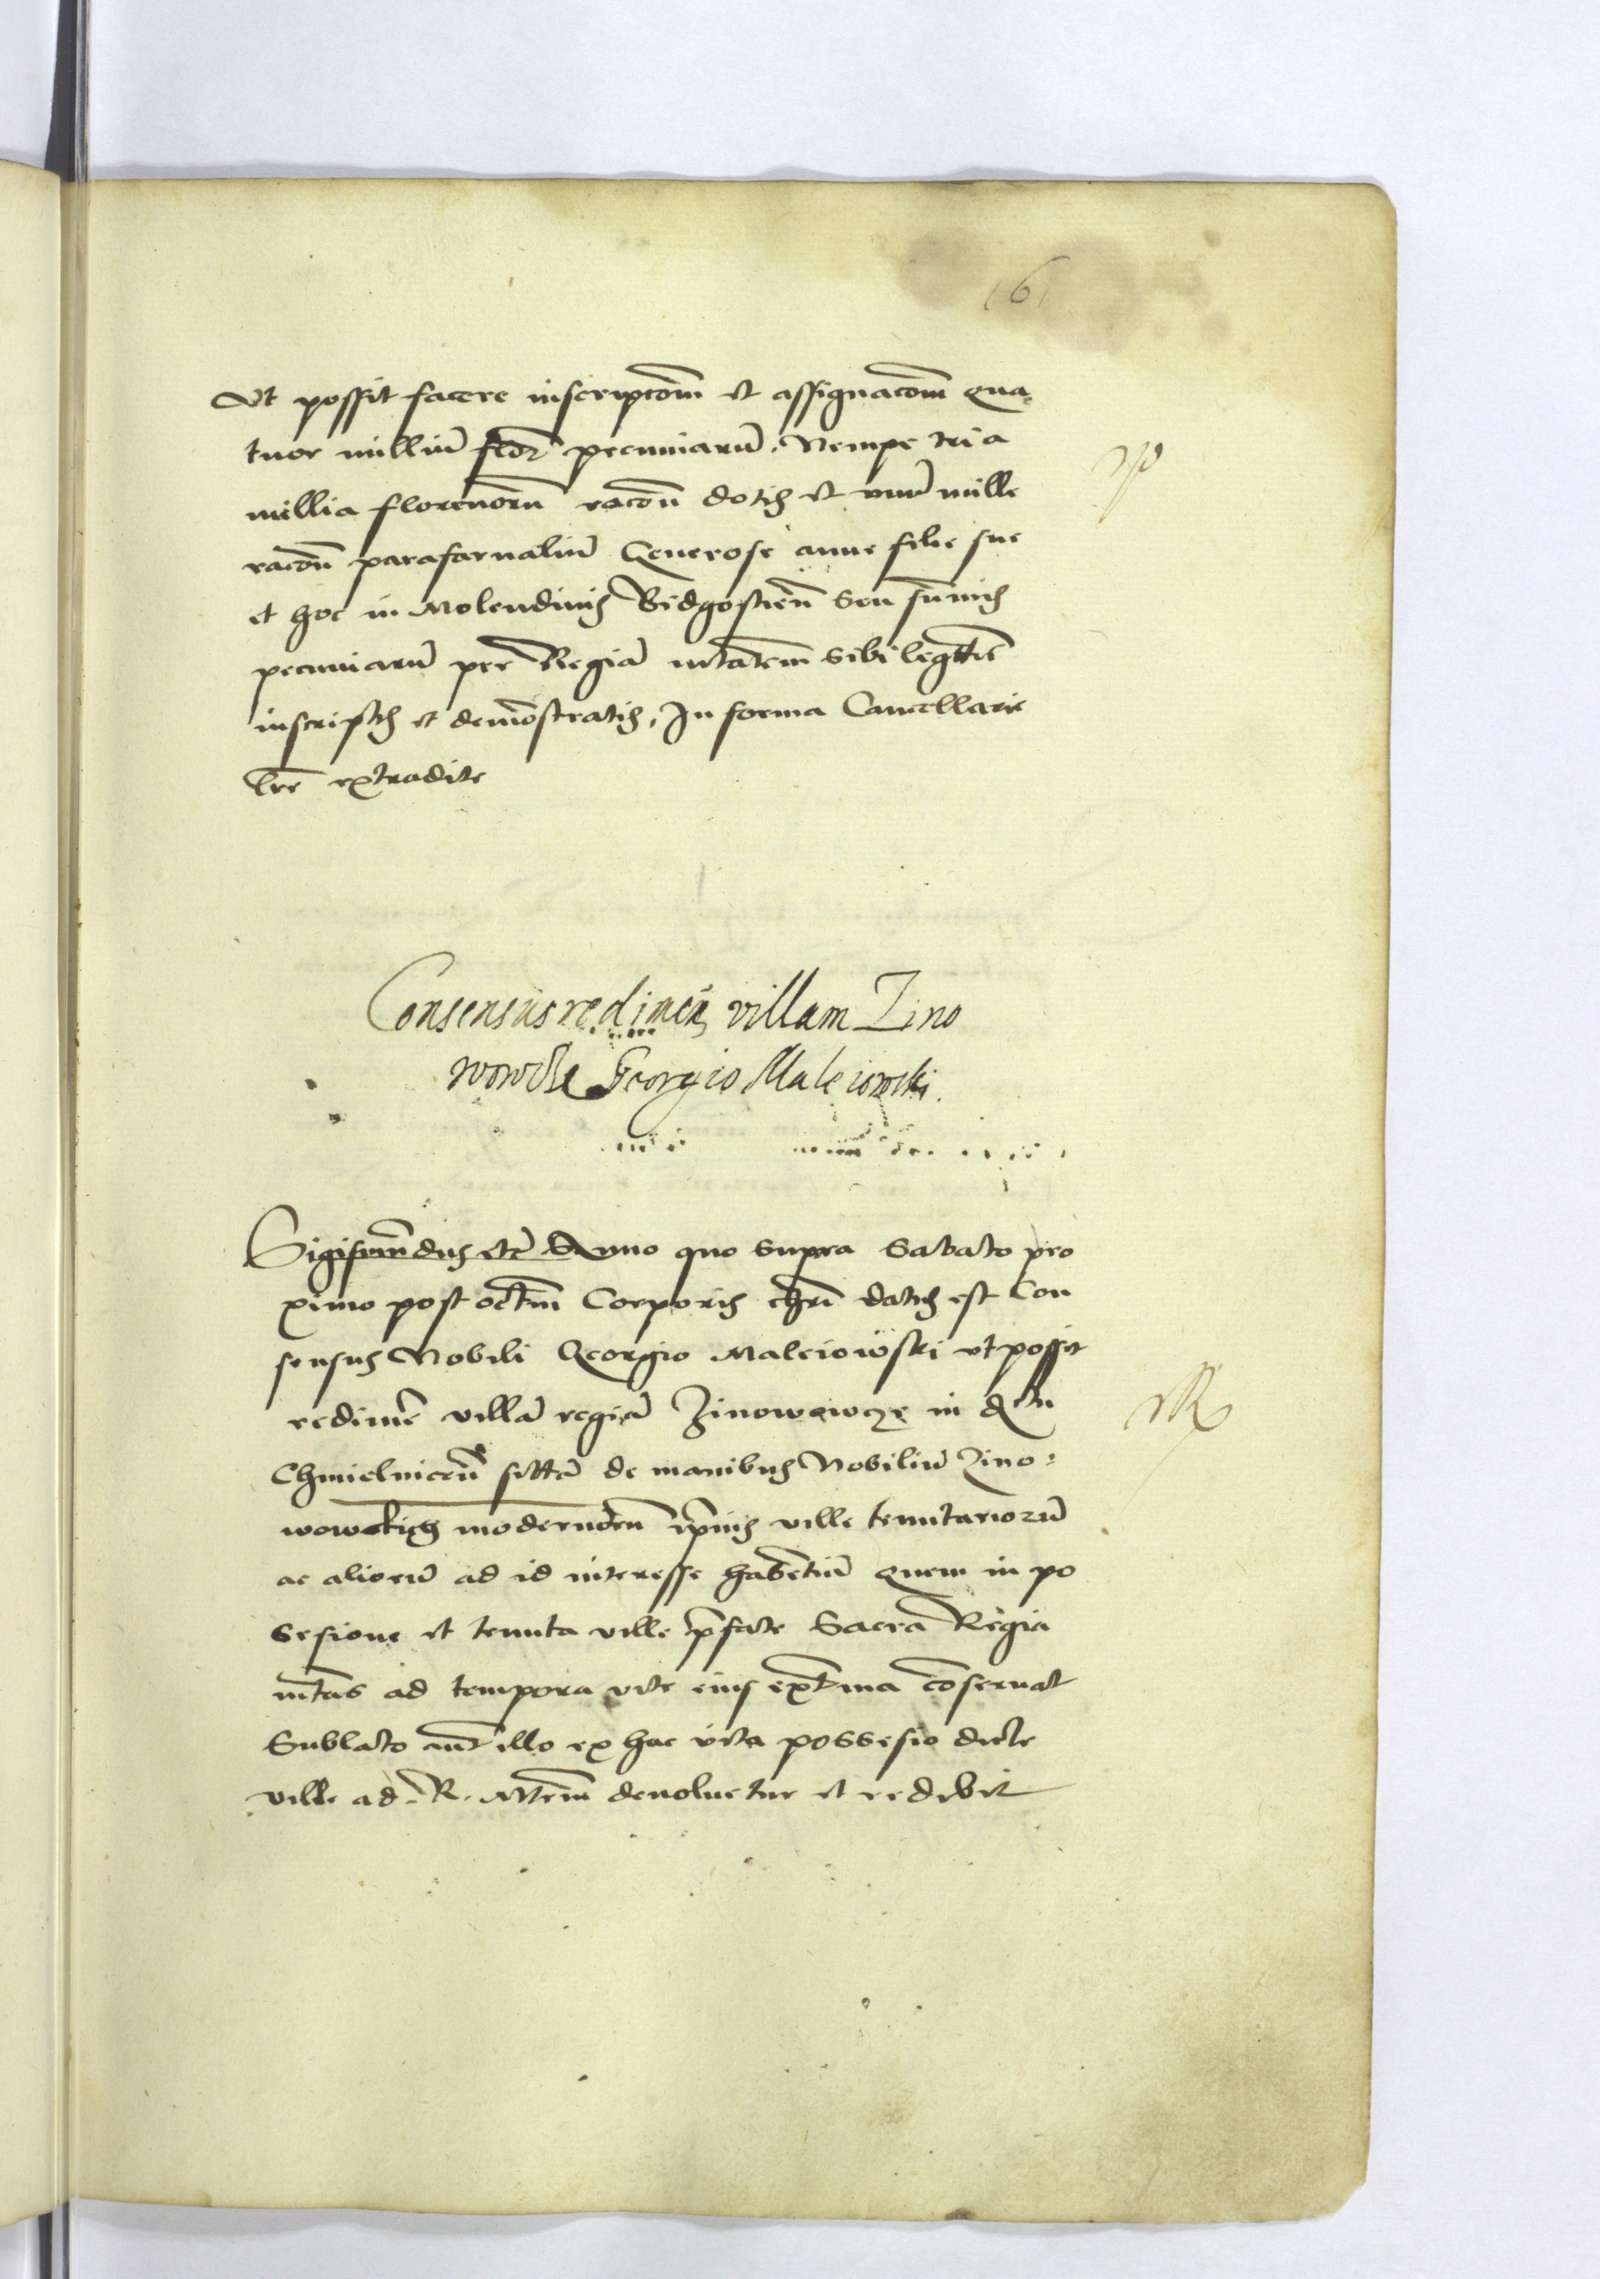 161
Ut possit facere inscriptcom̃ et assignacom̃ qua
tuor milliu͂ flor̃ pecuniaru͂. Nempe tria
millia florenoru͂ racon̄ dotis et unu͂ mille
racon̄ parafarnaliu͂ Generose anne filie sue
et hoc in Molendinis Bidgostien̄ seu sum̄is
pecuniaru͂ per Regia͂ mtatem̄ sibi legtt̄e
inscriptis et demo͂stratis, In forma Cancellarie
lr̄e extradite
Consensus redimen̄ villam Zino
Georgio Maleiowski.
Sigismu͂dus etc̄ Anno quo supra Sabato pro
ximo post octam̄ Corporis chri͂ datus est Con
sensus Nobili Georgio Maleiowski ut possit
redime͂ villa͂ regia͂ Zinowowcze in
Chmielnicen̄ sitta͂ de manibus Nobiliu͂ Zino:
wowskich modernoru͂ ip̄ius ville tenutarioru͂
ac alioru͂ ad id interesse habe͂tiu͂ quem in po
sesione et tenuta ville p̄fate Sacra Regia
mtas ad tempora vite eius ext̄ma co͂seruat
Sublato aut̄ illo ex hac vita possesio dicte
ville ad. R. Mtem̄ deuoluetur et redibit